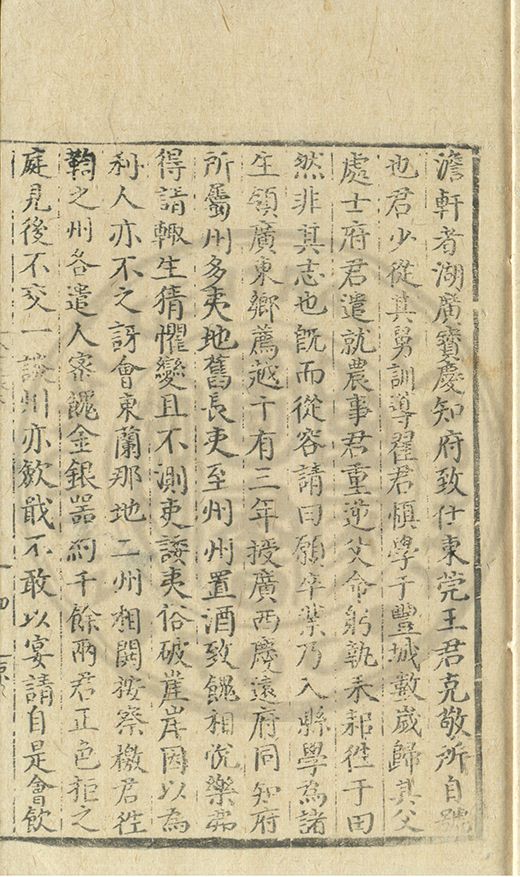 澹軒者湖廣寶慶知府致仕東莞王君克敬所自號
也君少從其舅訓導翟君慎學于豐城數歲歸其父
處士府君遣就農事君重逆父命躬執耒耜徃于田
然非其志也既而從容請曰願卒業乃入縣學為諸
生領廣東鄉薦越十有三年授廣西慶遠府同知府
所屬州多夷地舊長吏至州州置酒致餽相悅樂弗
得請輙生猜懼變且不測吏諉夷俗破崖岸因以為
利人亦不之訝會東蘭那地二州相鬨按察檄君徃
鞫之州各遣人密餽金銀器約千餘兩君正色拒之
庭見後不交一談州亦歛戢不敢以宴請自是會飲